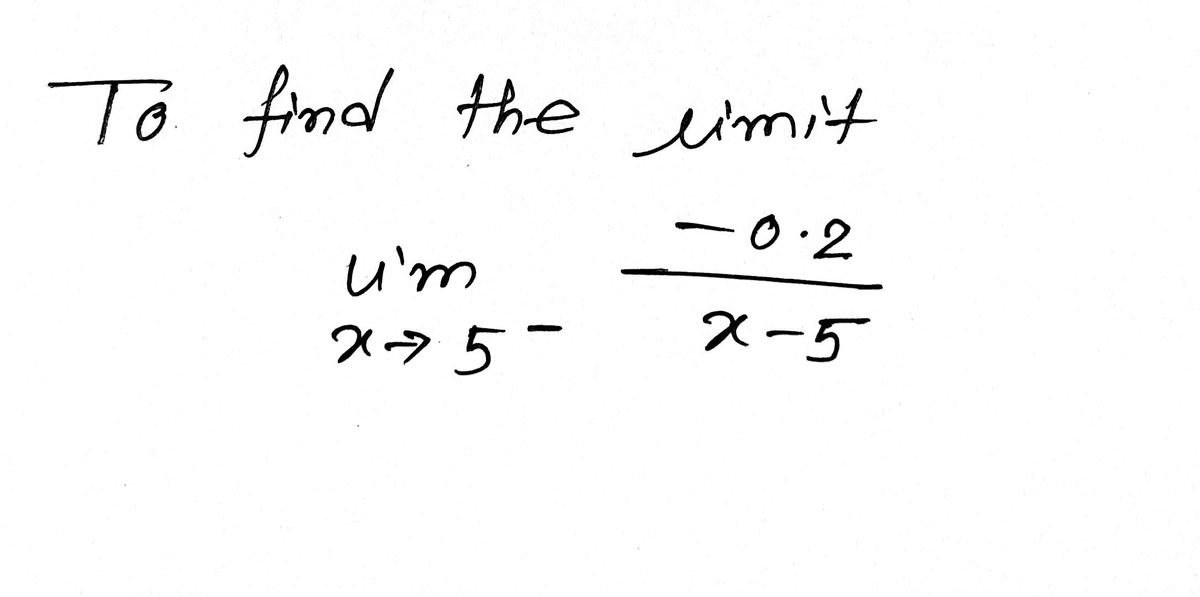 To find the limit
lim -0.2
x→5- x-5